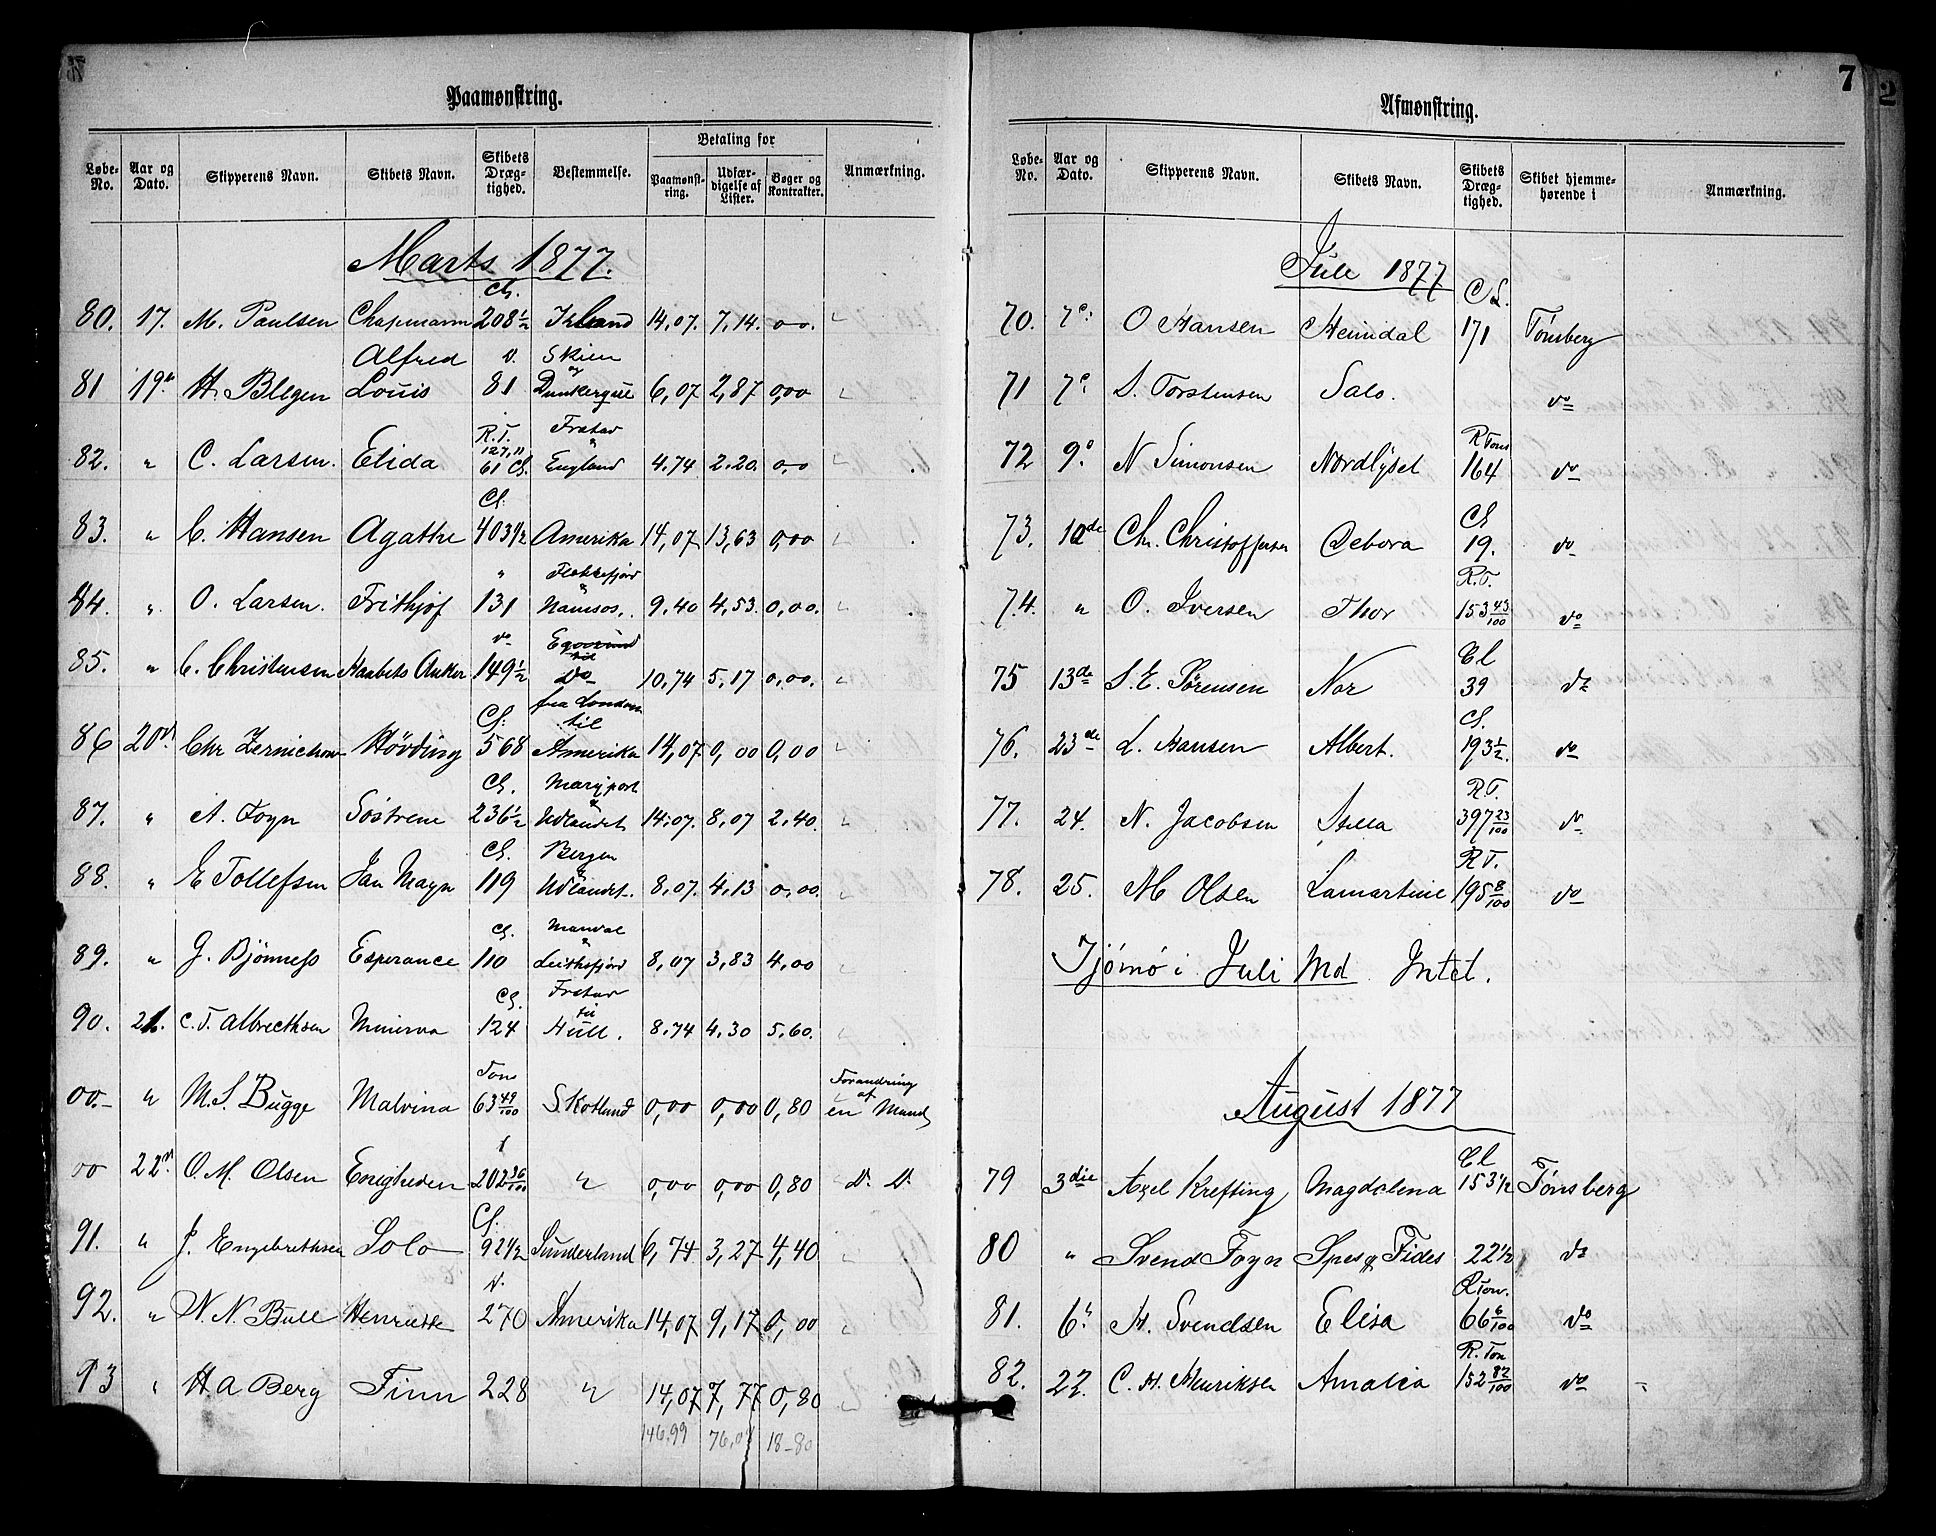 7
2
Paamønstring.
Løbe-No. Aar og Dato. Skipperens Navn. Skibets Navn. Skibets Dræg-tighed. Bestemmelse. Betaling for Paamønst-ring. Udfær-digelse af Lister. Bøger og Kontrakter. Anmærkning.
Marts 1877.
80. 17. M. Paulsen Chapmann Cl. 208 1/2 Irland 14,07. 7,14. 0-0. "
81 19d H. Blegen Alfred Louis D. 81 Skien og Dunkerque 6,07 2,87 0,00 "
82. " C. Larsen. Elida R.T. 127,11 61 Cl. Frstad " England 4.74 2.20. 0-0 "
83. " C. Hansen Agathe Cl. 403 1/2 Amerika 14,07 13,63 0,00 "
84. " O. Larsen. Frithjof " 131 Flekkefjord " Namsos. 9.40 4,53. 0,00. "
85. " C. Christensen Haabets Anker do 149 1/2 Egersund til Do 10.74 5.17 0.00. "
86 20d Chr Zernichow Høvding Cl. 568 fra London til Amerika 14,07. 0,00 0,00 "
87. " A. Foyn Søstrene Cl. 236 1/2 Maryport & Udlandet 14.07. 8,07 2.40. "
88. " E Tollefsen Jan Mayn Cl. 119 Bergen & Udlandet. 8,07. 4,13 0.00. "
89. " G. Bjönness Esperance Cl. 110 Mandal & Leithsfjord 8,07 3,83 4,00 "
90. 21. C. T. Albrecthsen Minerva Cl. 124 Frstad til Hull. 8.74 4.30 5,60. "
00.- " M. S. Bugge Malvina Tons 63 49/100 Skotland 0,00 0,00 0,80 Forandring af en Mand
00 22d. O. M. Olsen Enigheden 202 36/100 " 0,00 0,00 0,80 D. D.
91. " J. Engebrethsen Solo Cl. 92 1/2 Sunderland 6,74 3,27 4,40 "
92. " N. N. Bull Henriette D. 270 Amerika 14,07 9,17 0,00 "
93 " H. A Berg Finn 228 " 14,07 7,77 0,80 "
146.99 76,07 18-80
Afmønstring.
Løbe-No. Aar og Dato. Skipperens Navn. Skibets Navn. Skibets Dræg-tighed. Skibet hjemme-hørende i Anmærkning.
Juli 1877
70. 7e. O Hansen Heimdal C L. 171 Tönsberg
71 7e. S. Torstensen Salo. do
72 9e N Simonsen Nordlyset R Tons 164 do
73. 10de Chr. Christoffersen Debora Cl 19. do
74. " O. Iversen Thor R.T. 153 43/100 do
75 13de S. E. Sörensen Nor Cl 39 do
76. 23de L. Hansen Albert. Cl. 193 1/2. do
77. 24. N. Jacobsen Stella R.T. 397 23/100 do
78. 25. M Olsen Lamartine R T. 195 8/100 do
Tjömö i Juli Md Intet.
August 1877
79 3die Axel Krefting Magdalena Cl 153 1/2 Tönsberg
80 " Svend Foyn Spes & Fides 22 1/2 do
81. 6te H. Svendsen Elisa R Ton. 66 6/100 do
82. 22. C. H. Henriksen Amalia R. Ton 152 82/100 do